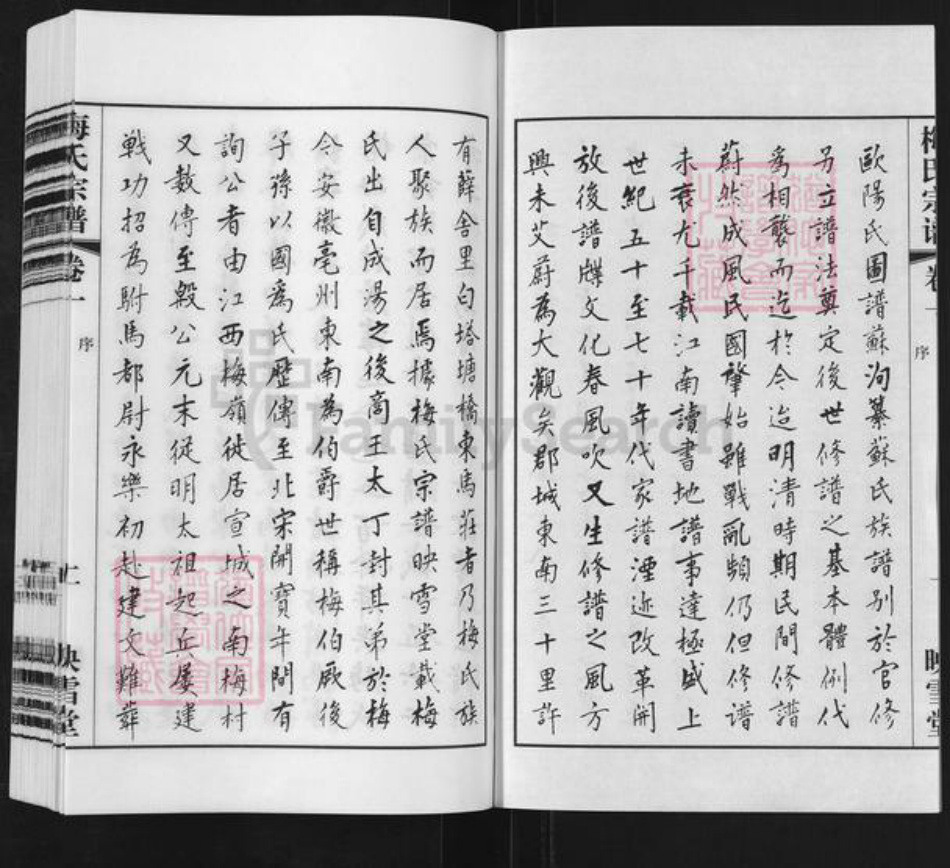 梅氏宗譜 卷一 序 映雪堂
歐陽氏圖譜蘇洵纂蘇氏族譜別於官修
另立譜法奠定後世修譜之基本體例代
爲相襲而迄於今迨明清時期民間修譜
蔚然成風民國肇始雖戰亂頻仍但修譜
未衰尤千載江南讀書地譜事達極盛上
世紀五十至七十年代家譜湮迹改革開
放後譜牒文化春風吹又生修譜之風方
興未艾蔚為大觀矣郡城東南三十里許
有薛舍里白塔塘橋東馬莊者乃梅氏族
人聚族而居焉據梅氏宗譜映雪堂載梅
氏出自成湯之後商王太丁封其弟於梅
今安徽亳州東南為伯爵世稱梅伯厥後
子孫以國爲氏歷傳至北宋開寶年間有
詢公者由江西梅嶺徙居宣城之南梅村
又數傳至毅公元末從明太祖起兵屡建
戦功招為駙馬都尉永樂初赴建文難葬
梅氏宗譜 卷一 序 映雪堂
FamilySearch